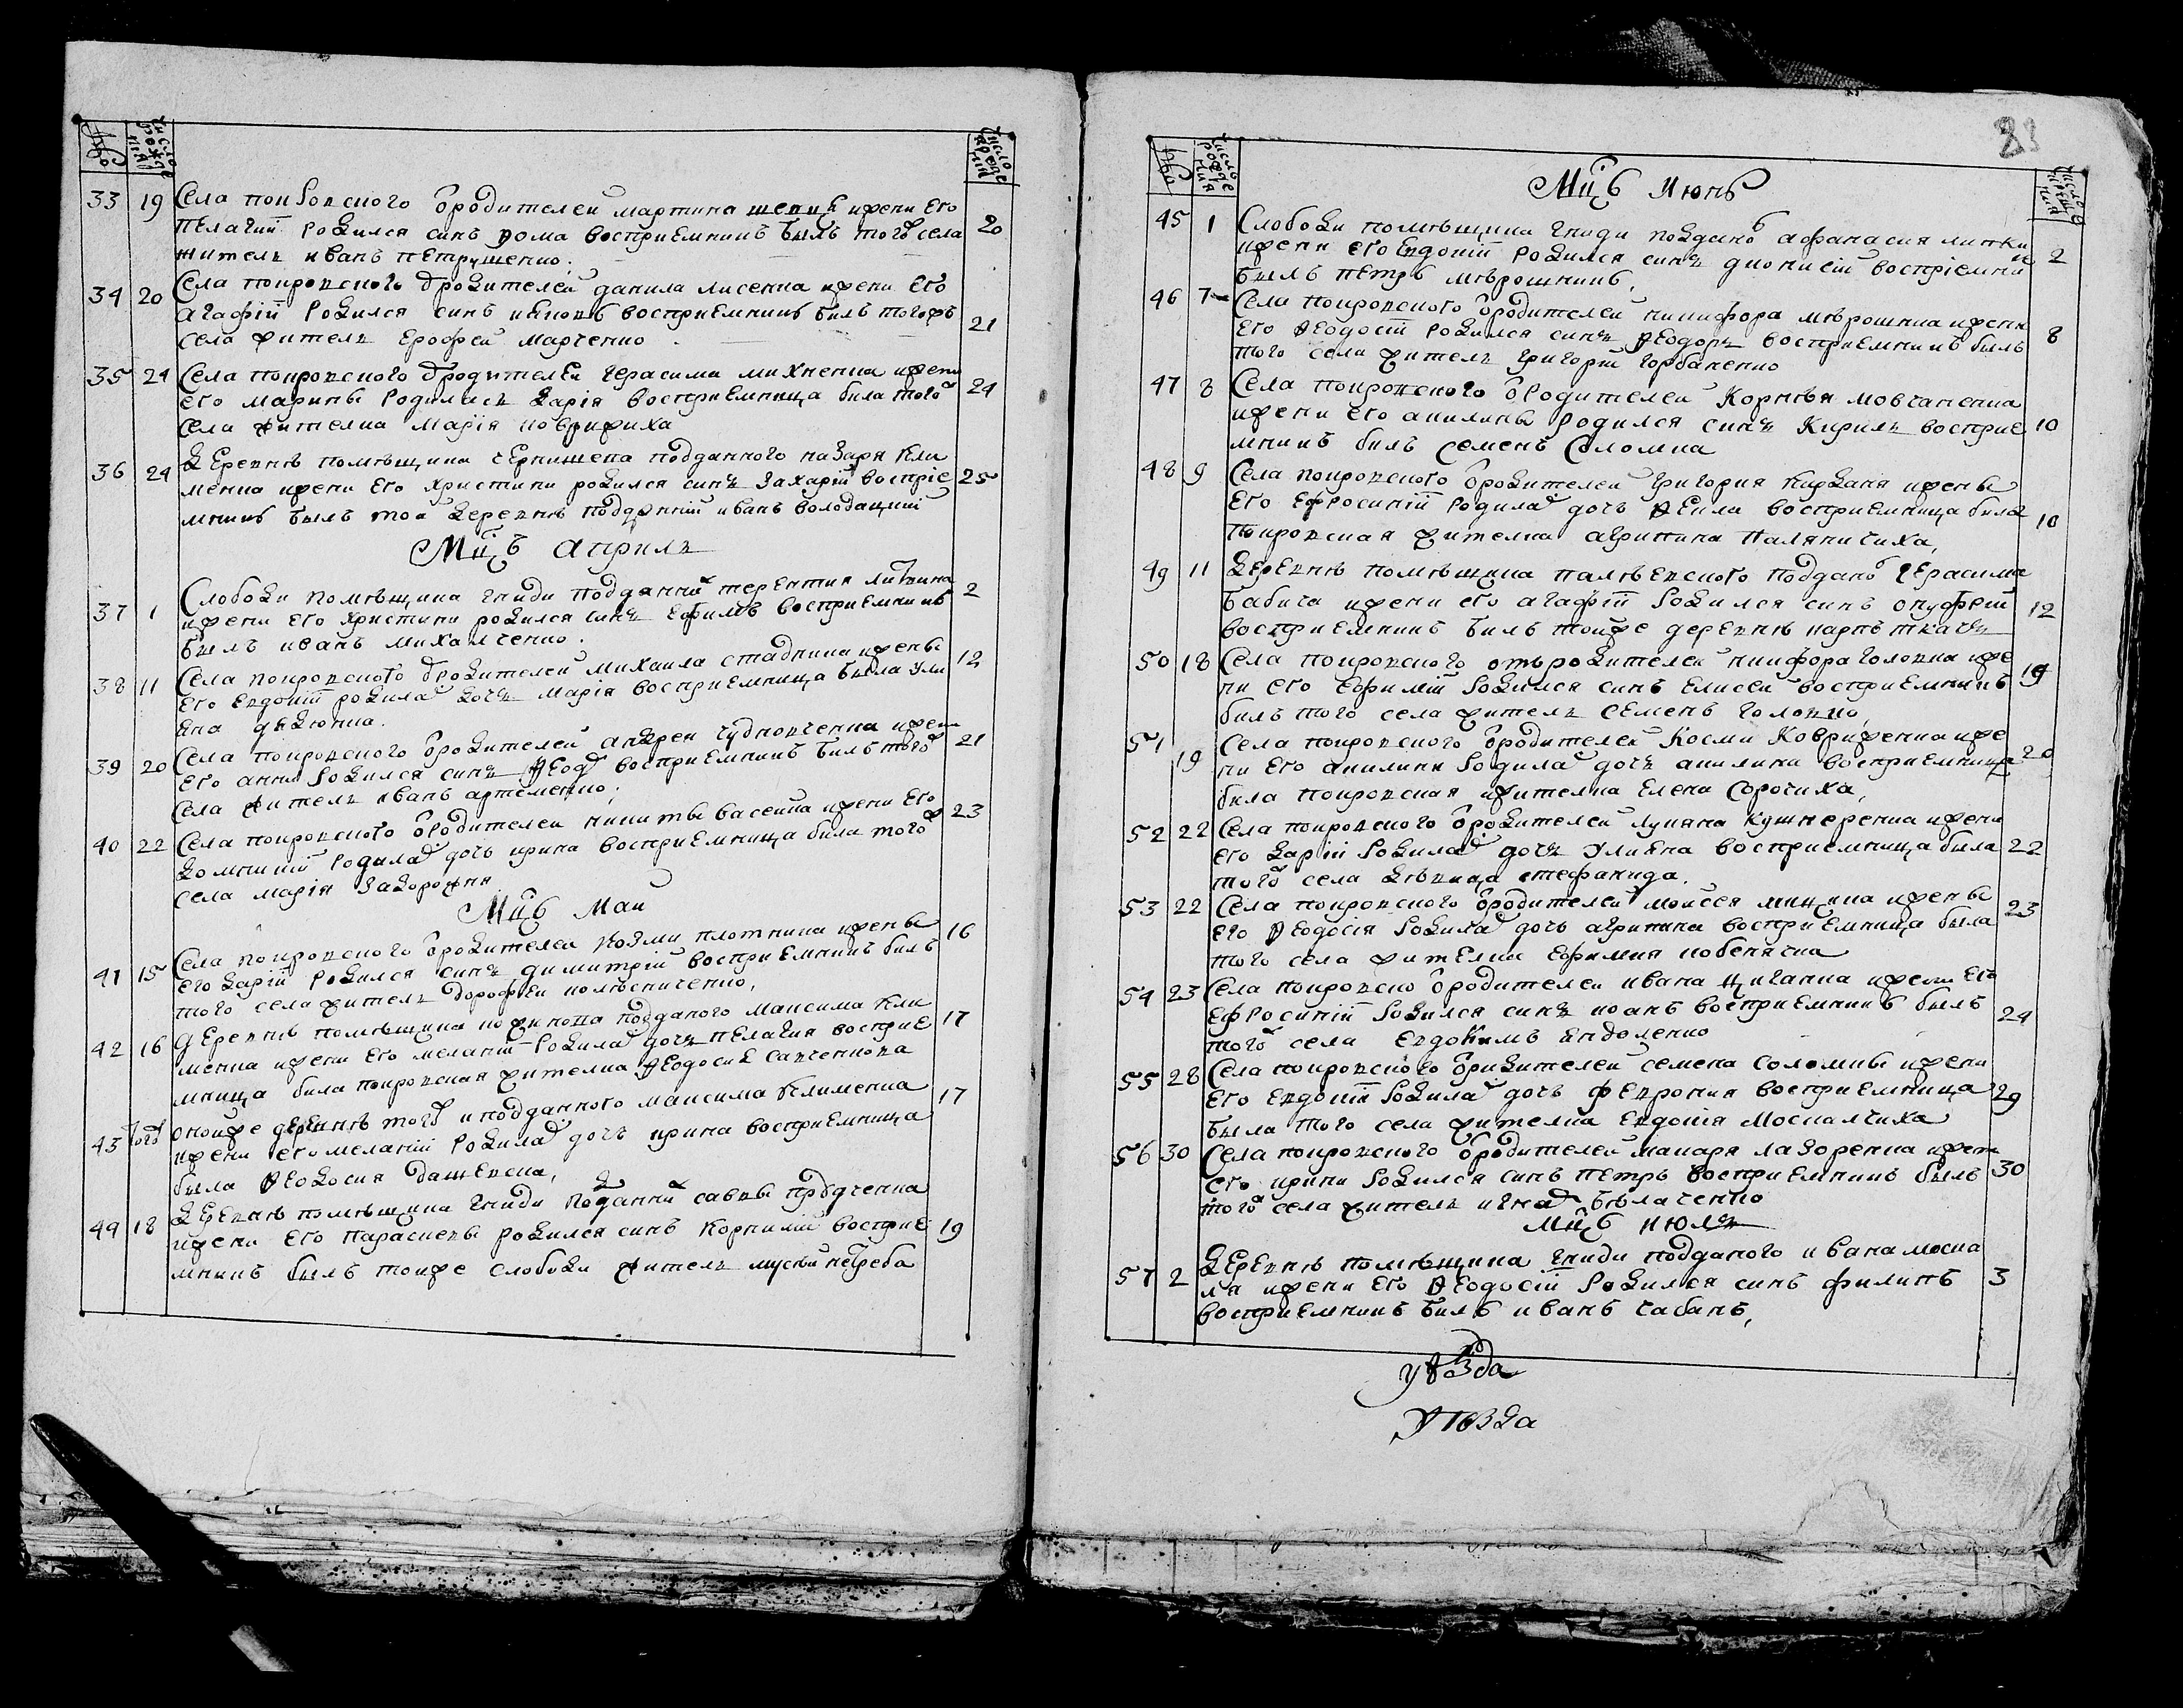 №
Число рождения
Число крещения
33 19 Села покровского ѿ родителей мартина жены его 20
пелагии родился синъ Ѳома восприемникъ былъ того села
житель иванъ петрушенко;
34 20 Села покровского ѿ родителей данила лисенка жени его 21
агафiи родился синъ восприемникъ билъ тогожъ
села житель ерофей марченко
35 24 Села покровского ѿ родителей герасима михненка жени 24
его марины родилась дарiя восприемница била того
села жителка марiя коврижиха
36 24 деревнѣ помѣщика подданного назаря кли 25
менка жени его христини родился синъ захарiй воспрiе
мникъ былъ той деревнѣ подданнiй иванъ володацкий
Мцъ априль
37 1 Слободи помѣщика гниди подданий терентия литвина 2
жени его христини родился синъ ефимъ восприемникъ
былъ иванъ михалченко.
38 11 Села покровского ѿ родителей михаила стадника жены 12
его евдокiи родила дочь марiя восприемница была ули
яна дядюнка.
39 20 Села покровского ѿ родителей андрея чудновченка жени 21
его анны родился синъ Ѳеод восприемникъ билъ того
села житель иванъ артеменко;
40 22 Села покровского ѿ родителей никиты васейка жени его 23
домникiй родила дочь ирина восприемница била того
села марiя задорожня
Мцъ Маи
41 15 Села покровского ѿ родителей козми плотника жены 16
его дарiй родился синъ димитрiй восприемникъ билъ
того села житель дорофей колѣсниченко,
42 16 деревнѣ помѣщика подданого максима кли 17
менка жени его меланiи родила дочь пелагия восприе
мница била покровская жителка Ѳеодосия савченкова
43 тогож оноиже деревнѣ того и подданного максима клименка 17
жени его меланiи родила дочь ирина восприемница
была Ѳеодосия дашевска,
44 18 деревнѣ помѣщика гниди подданий савви продченка 19
жени его параскевы родился синъ корнилiй восприе
мникъ былъ тоиже слободи житель мусий негреба
28
№
Число рождения
Мцъ июнь
Число крещения
45 1 Слободи помѣщика гниди подданъ афанасия липки 2
жени его евдокiй родился синъ дионисiй воспрiемник
былъ петръ мѣрошникъ,
46 7 Села покровского ѿ родителей никифора мѣрошника жени 8
его Ѳеодосiй родился синъ Ѳеодоръ восприемникъ былъ
того села житель григорiй горбаненко
47 8 Села покровского ѿ родителей корнѣя мовчаненка
жени его акилины родился синъ кирилъ восприе 10
мникъ билъ семенъ соломка
48 9 Села покровского ѿ родителей григория карданя жены
его ефросинiй родила дочь Ѳекла восприемница била 10
покровская жителка агрипина паляничиха,
49 11 деревнѣ помѣщика палѣевского подданъ герасима
бабича жени его агафiй родился синъ онуфрей 12
восприемникъ билъ тоиже деревнѣ карпъ ткачъ
50 18 Села покровского отъ родителей никифора головка же
ни его ефимiй родился синъ елисей восприемникъ 19
билъ того села житель семенъ головко,
51 19 Села покровского ѿ родителей косми ковриженка же
ни его акилини родила дочь акилина восприемница 20
била покровская жителка елена сорочиха,
52 22 Села покровского ѿ родителей лукяна кушнеренка жени
его дарiй родила дочь улияна восприемница била 22
того села дѣвица стефанида.
53 22 Села покровского ѿ родителей моисея жены 23
его Ѳеодосiя родила дочь агрипина восприемница была
того села жителка ефимия кобенячка
54 23 Села покровско ѿ родителей ивана циганка жени его
ефросинiй родился синъ иоанъ восприемникъ былъ 24
того села евдокимъ евдоленко
55 28 Села покровского ѿ родителей семена соломки жени
его евдокiй родила дочь феврония восприемница 29
была того села жителка евдокiя москалчиха
56 30 Села покровского ѿ родителей макаря лазоренка жени
его ирини родился синъ петръ восприемникъ былъ 30
того села житель игнат бѣлаченко
Мцъ июль
57 2 деревнѣ помѣщика гниди подданого ивана моска
ля жени его Ѳеодосiй родился синъ филипъ 3
восприемникъ билъ иванъ чабанъ,
уѣзда
уѣзда